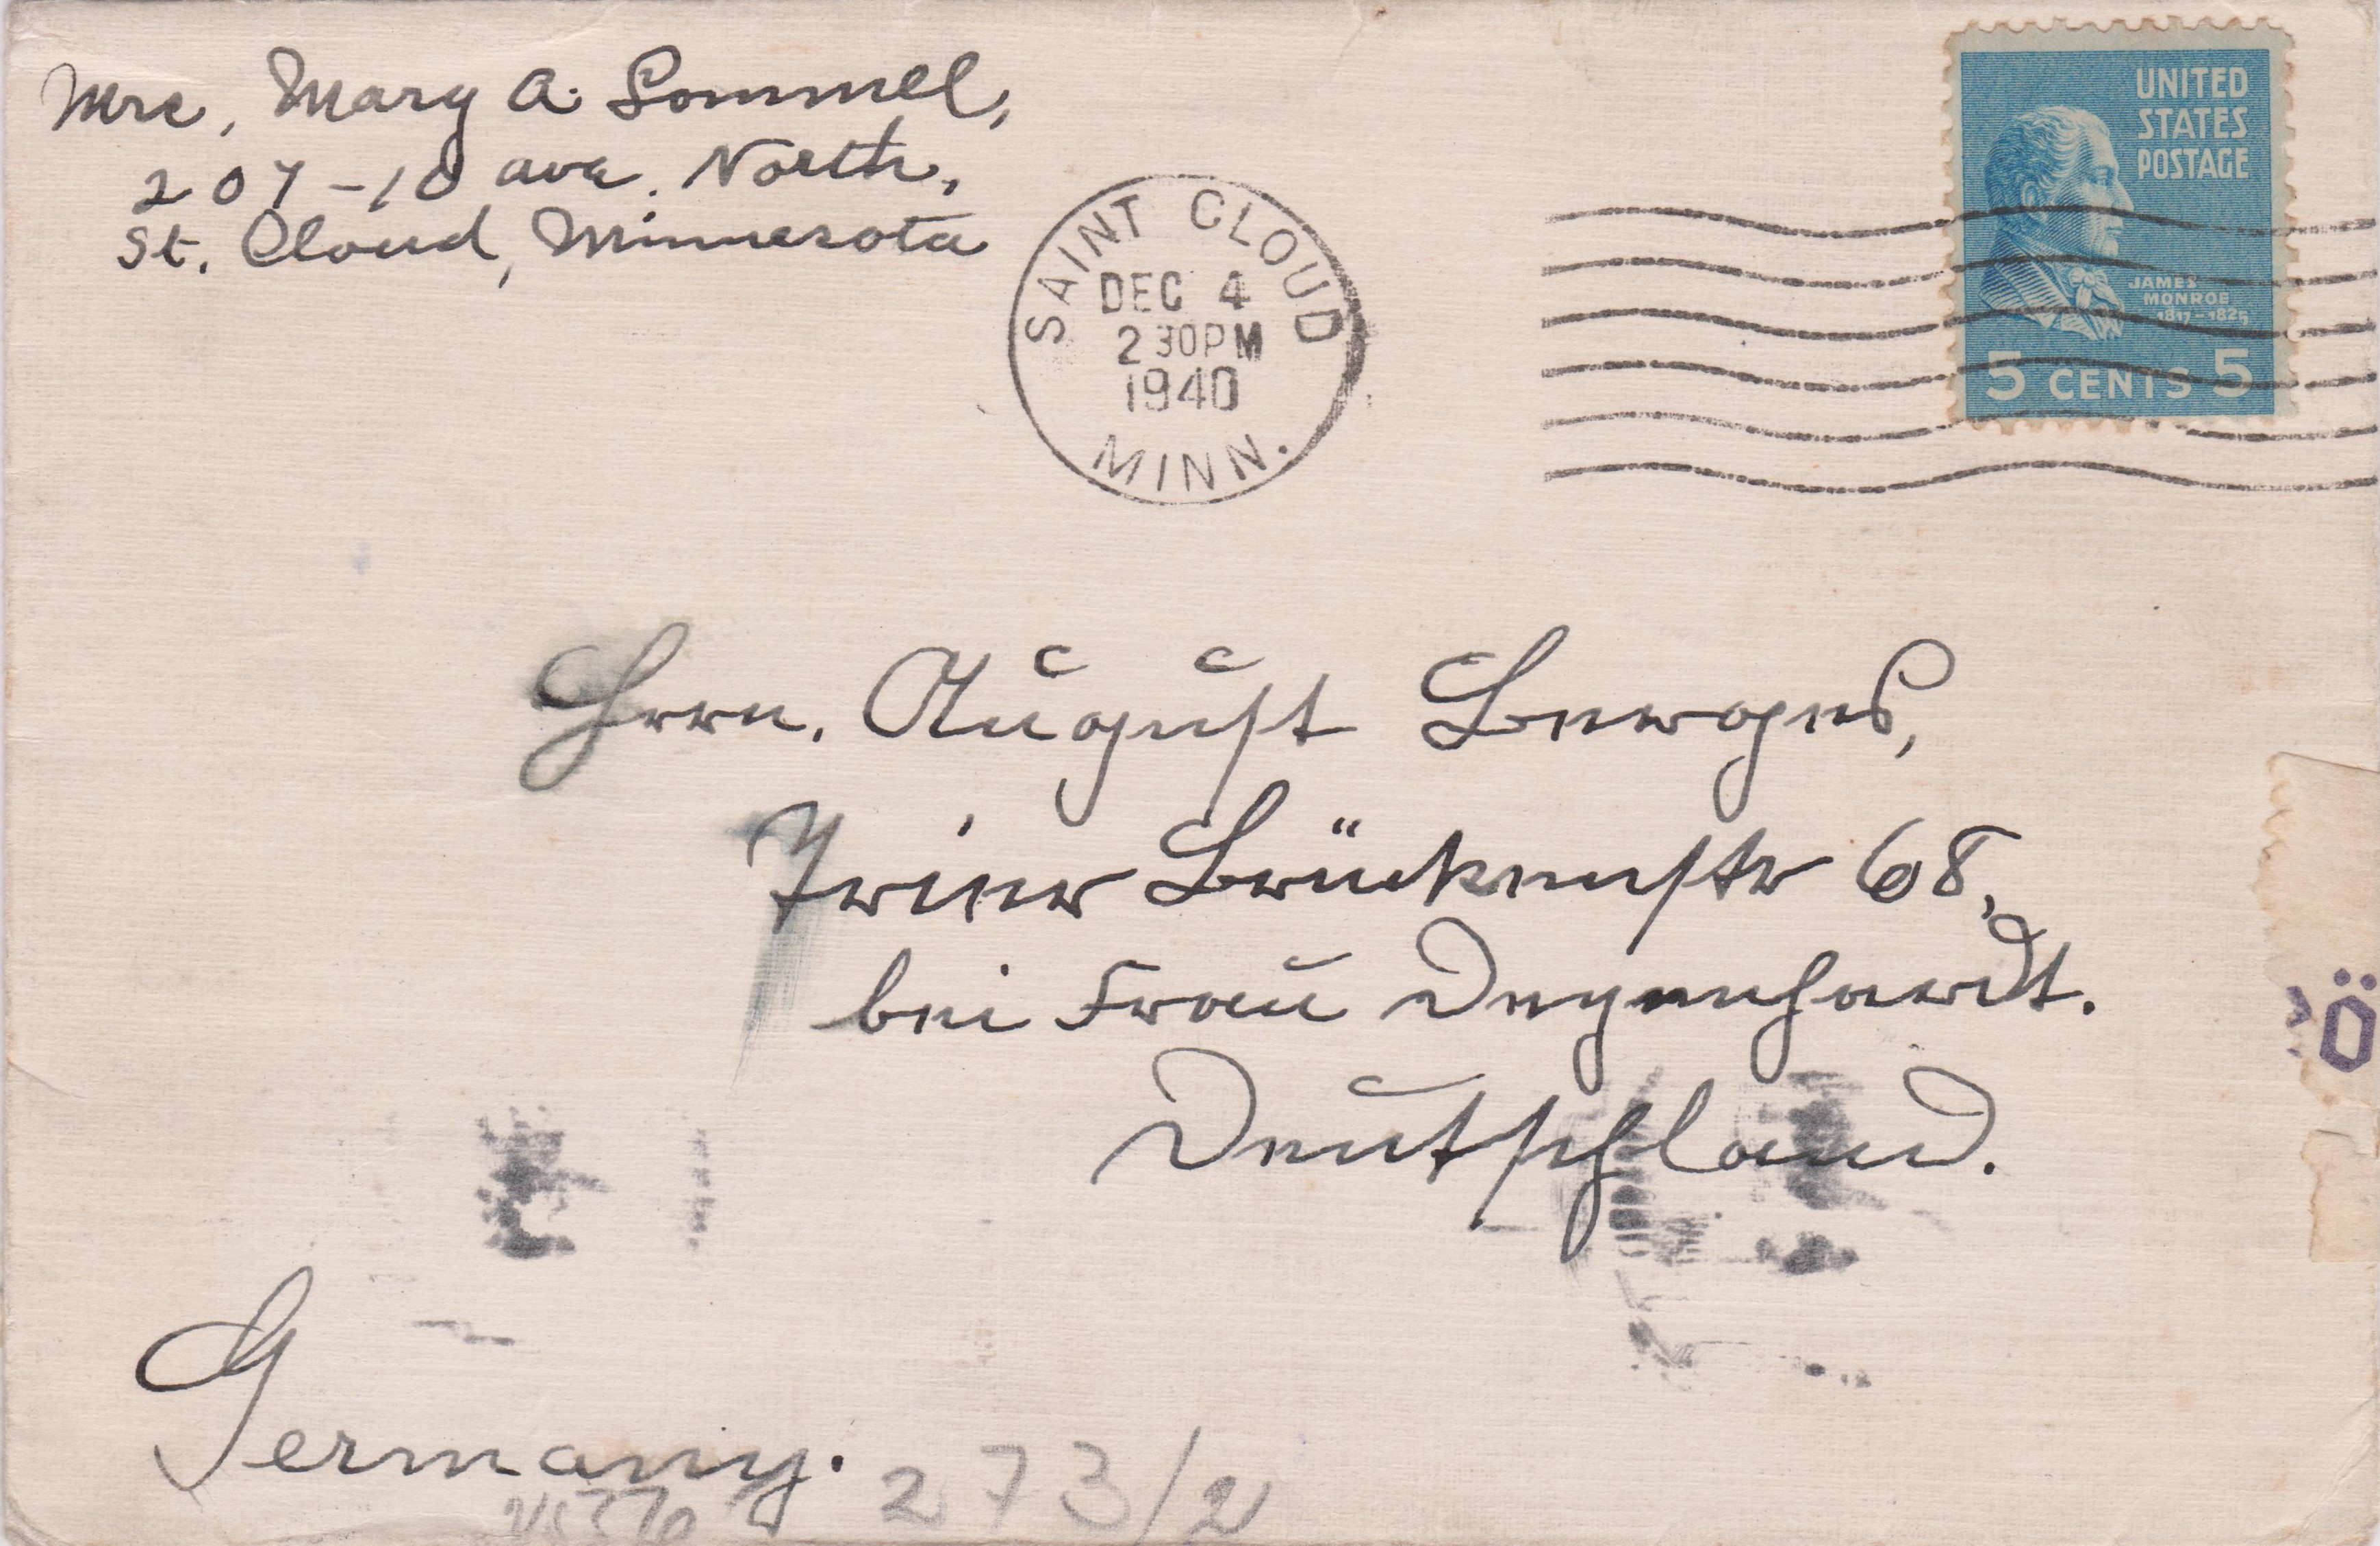 Mrs, Mary A. Sommel,
207-10 ave. North,
St. Cloud, Minnesota
UNITED
STATES
POSTAGE
JAMES
MONROE
1817-1825
5 CENTS 5
SAINT CLOUD
DEC 4
2 30PM
1940
MINN.
Herrn. August Berges,
Trier Brückenstr 68,
bei Frau Degenhardt.
Deutschland.
Germany.
273/2